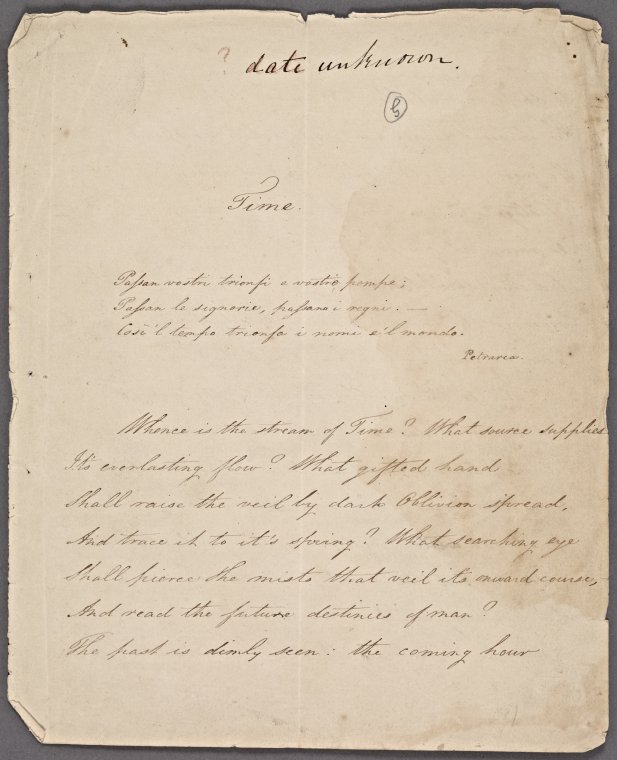 ? date unknown.
5
Time.
Passan vostri trionfi e vostre pompe;
Passan le signorie, passano i regni. —
Così 'l tempo trionfa i nomi e 'l mondo.
Petrarca.
Whence is the stream of Time? What source supplies
It's everlasting flow? What gifted hand
Shall raise the veil by dark Oblivion spread,
And trace it to it's spring? What searching eye
Shall pierce the mists that veil its onward course,
And read the future destinies of man?
The past is dimly seen: the coming hour